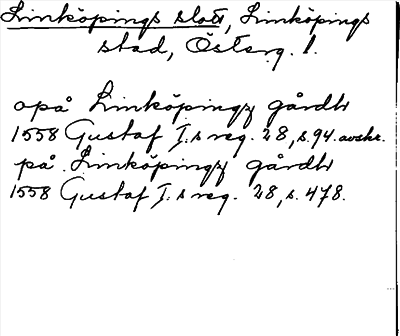 Linköpings slott, Linköpings
stad, Österg. l.
opå Linköpingz gårdh
1558 Gustaf I:s reg. 28, s. 94. avskr.
på Linköpingz gårdh
1558 Gustaf I:s reg. 28, s. 478.